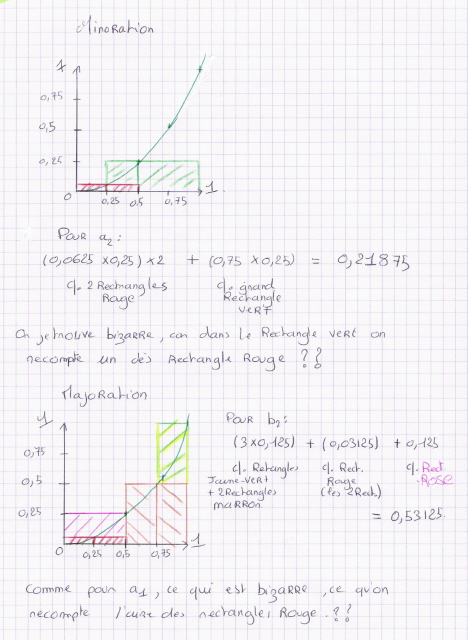 Minoration
1
0,75
0,5
0,25
0
0,25 0,5 0,75 1
Pour a2 :
(0,0625 x0,25) x2 + (0,75 x0,25) = 0,21875
cf. 2 Rectangles Rouge
cf. grand Rectangle VERT
je trouve bizarre, car dans le Rectangle vert on
recompte un des Rectangle Rouge ??
Majoration
1
0,75
0,5
0,25
0
0,25 0,5 0,75 1
Pour b2 :
(3x0,125) + (0,03125) + 0,125
cf. Retangles Jaune-VERT + 2Rectangles maRRon
cf. Rect. Rouge (les 2Rect.)
cf. Rect. ROSE
= 0,53125.
Comme pour a1, ce qui est bizarre, ce qu'on
recompte l'une des rectangles Rouge. ??